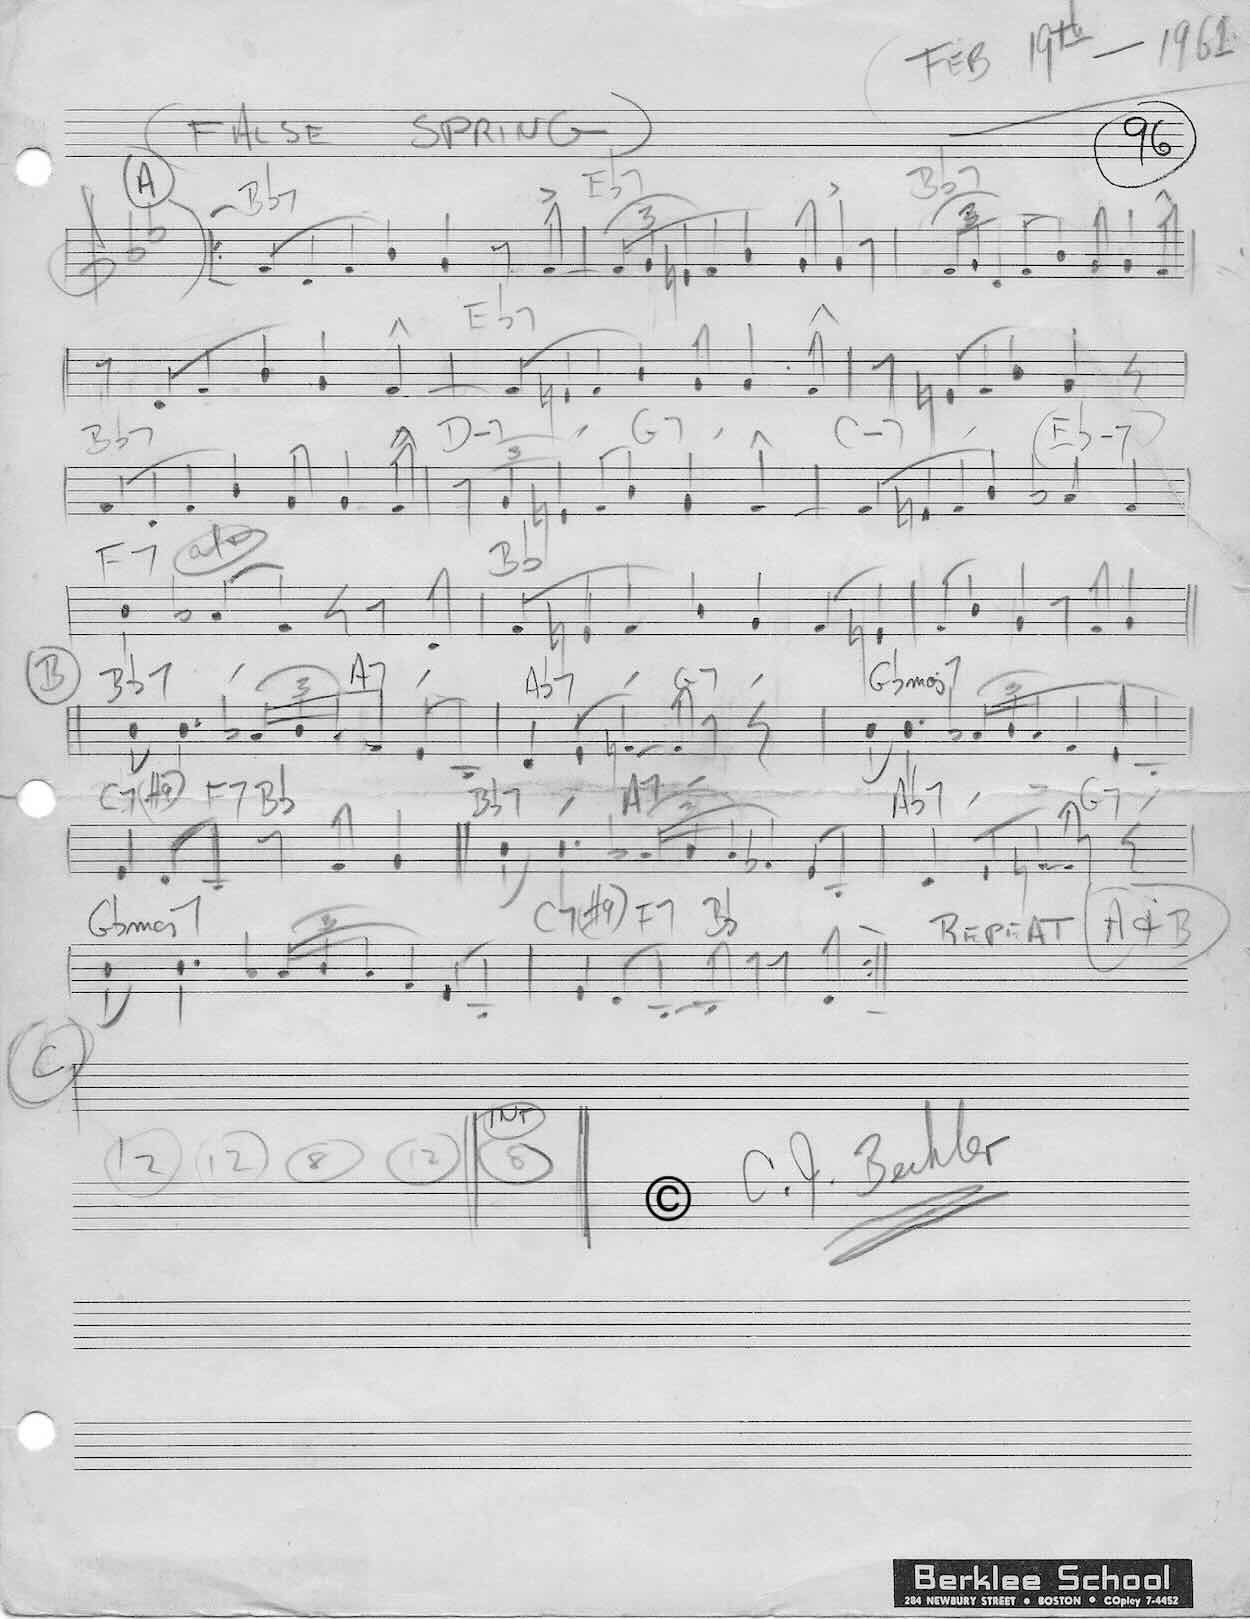 FEB 19th — 1961
(FALSE SPRING)
96
A
Bb7 Eb7 Bb7
3 3
Eb7
Bb7 D-7 G7 C-7 (Eb-7)
3
F7 Bb
B Bb7 A7 Ab7 G7 Gbmaj7
3 3
C7(#9) F7 Bb Bb7 A7 Ab7 G7
3
Gbmaj7 C7(#9) F7 Bb REPEAT A & B
3
C
INT
12 12 8 12 8
© C. J. Bechler
Berklee School
284 NEWBURY STREET • BOSTON • COpley 7-4452